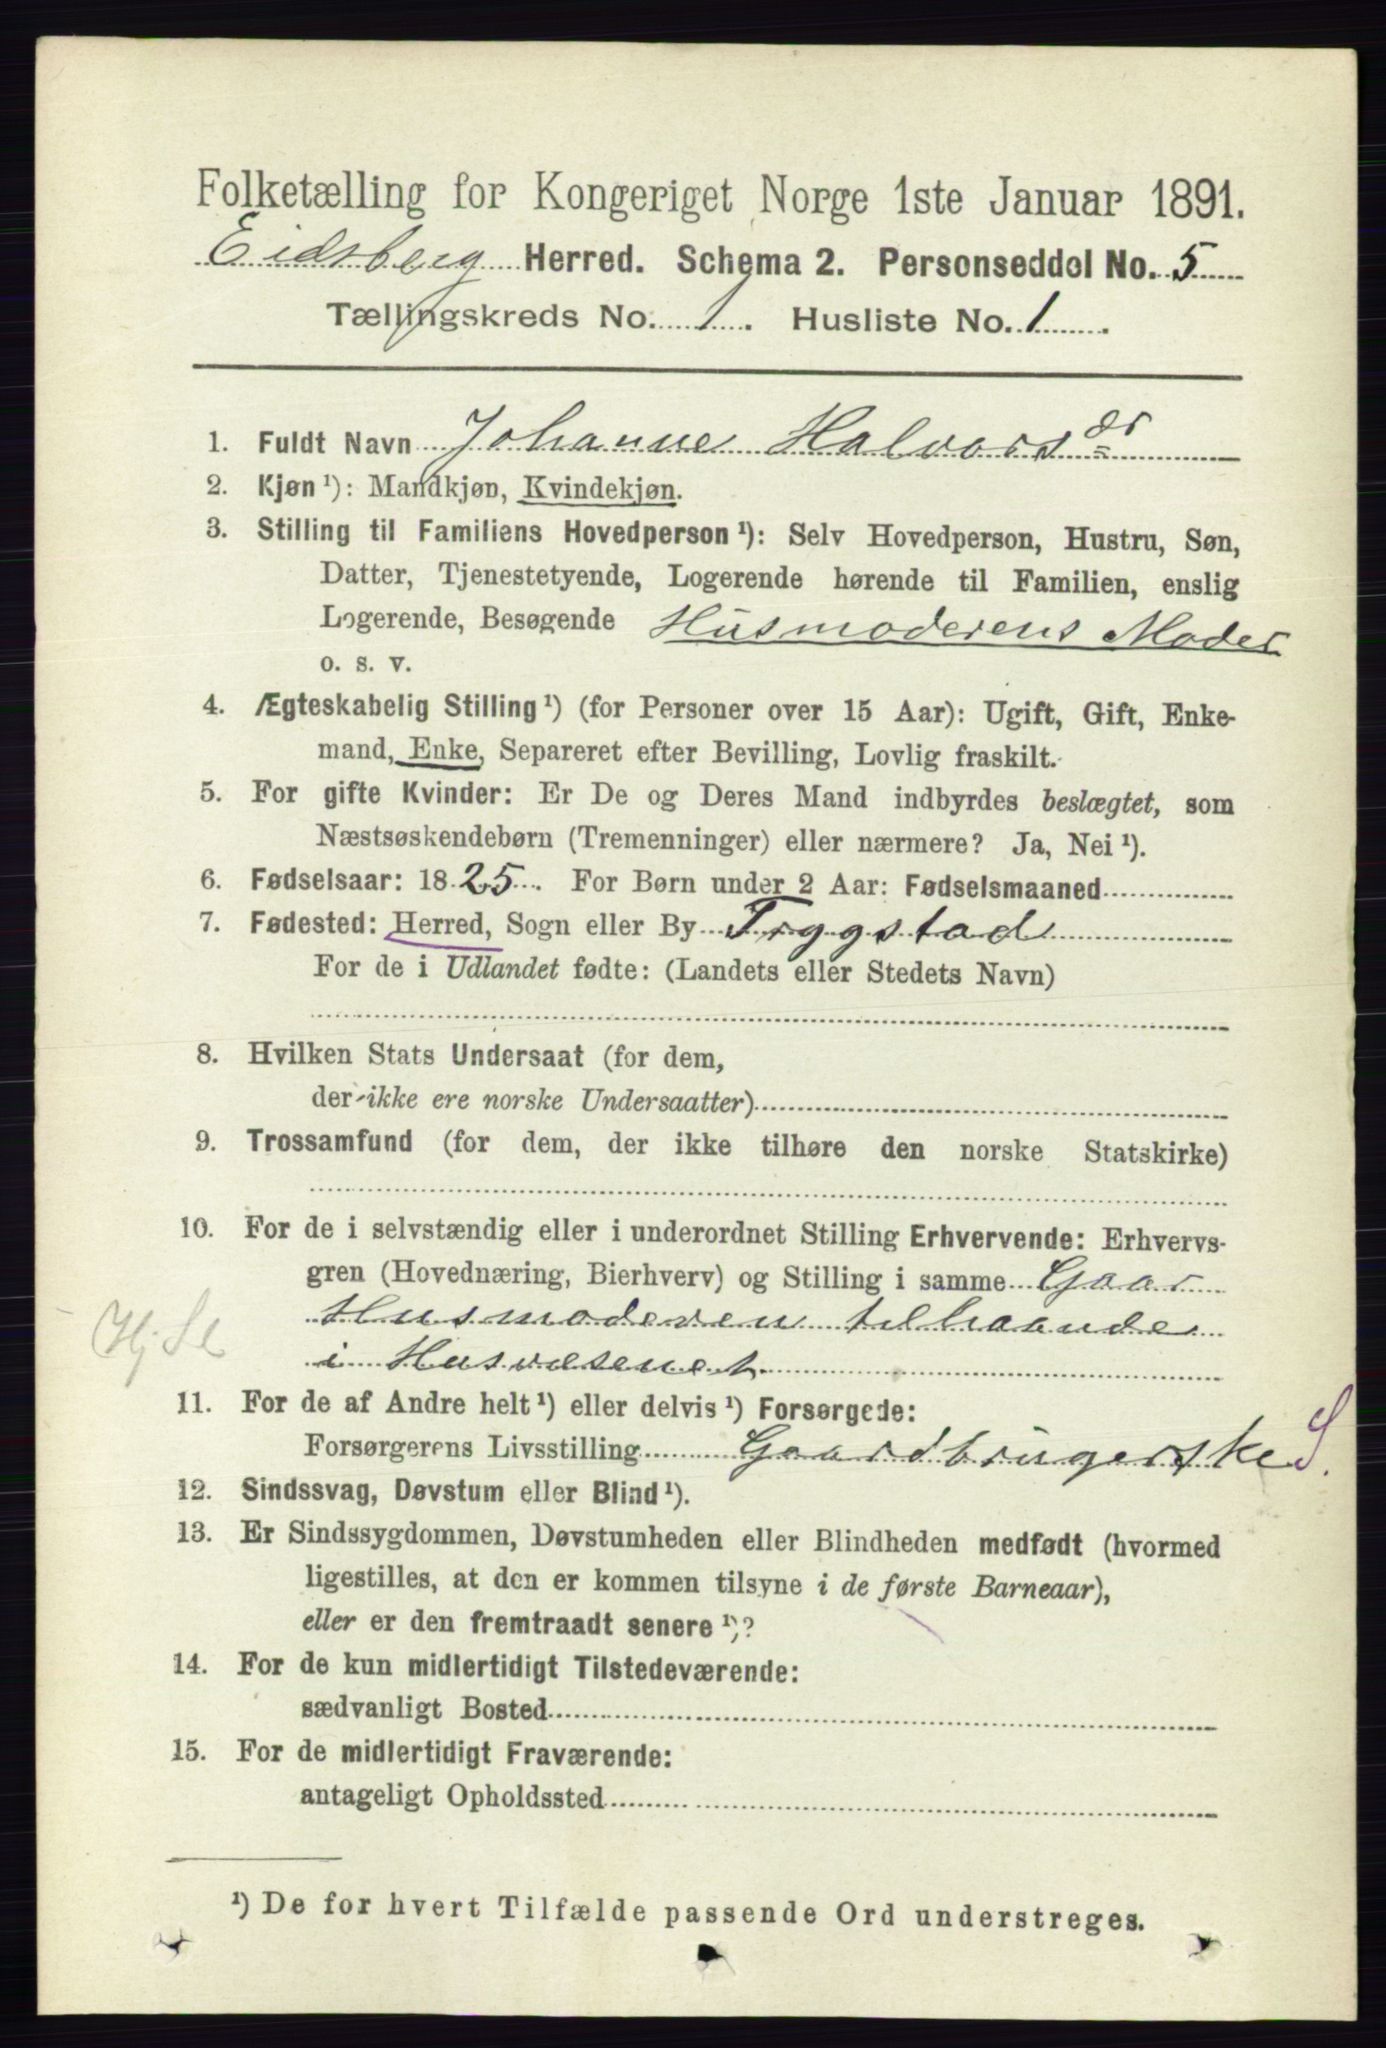 Folketælling for Kongeriget Norge 1ste Januar 1891.
Eidsberg Herred. Schema 2. Personseddel No. 5
Tællingskreds No. 1. Husliste No. 1.
1. Fuldt Navn Johanne Halvorsdr
2. Kjøn ¹): Mandkjøn, Kvindekjøn.
3. Stilling til Familiens Hovedperson ¹): Selv Hovedperson, Hustru, Søn,
Datter, Tjenestetyende, Logerende hørende til Familien, enslig
Logerende, Besøgende Husmoderens Moder
o. s. v.
4. Ægteskabelig Stilling ¹) (for Personer over 15 Aar): Ugift, Gift, Enke-
mand, Enke, Separeret efter Bevilling, Lovlig fraskilt.
5. For gifte Kvinder: Er De og Deres Mand indbyrdes beslægtet, som
Næstsøskendebørn (Tremenninger) eller nærmere? Ja, Nei ¹).
6. Fødselsaar: 1825. For Børn under 2 Aar: Fødselsmaaned
7. Fødested: Herred, Sogn eller By Trygstad
For de i Udlandet fødte: (Landets eller Stedets Navn)
8. Hvilken Stats Undersaat (for dem,
der ikke ere norske Undersaatter)
9. Trossamfund (for dem, der ikke tilhøre den norske Statskirke)
10. For de i selvstændig eller i underordnet Stilling Erhvervende: Erhvervs-
gren (Hovednæring, Bierhverv) og Stilling i samme Gaar
Husmoderen tilhaande
Hj. Sl
i Husvæsenet
11. For de af Andre helt ¹) eller delvis ¹) Forsørgede:
Forsørgerens Livsstilling Gaardbrugerske S.
12. Sindssvag, Døvstum eller Blind ¹).
13. Er Sindssygdommen, Døvstumheden eller Blindheden medfødt (hvormed
ligestilles, at den er kommen tilsyne i de første Barneaar),
eller er den fremtraadt senere ¹)?
14. For de kun midlertidigt Tilstedeværende:
sædvanligt Bosted
15. For de midlertidigt Fraværende:
antageligt Opholdssted
¹) De for hvert Tilfælde passende Ord understreges.